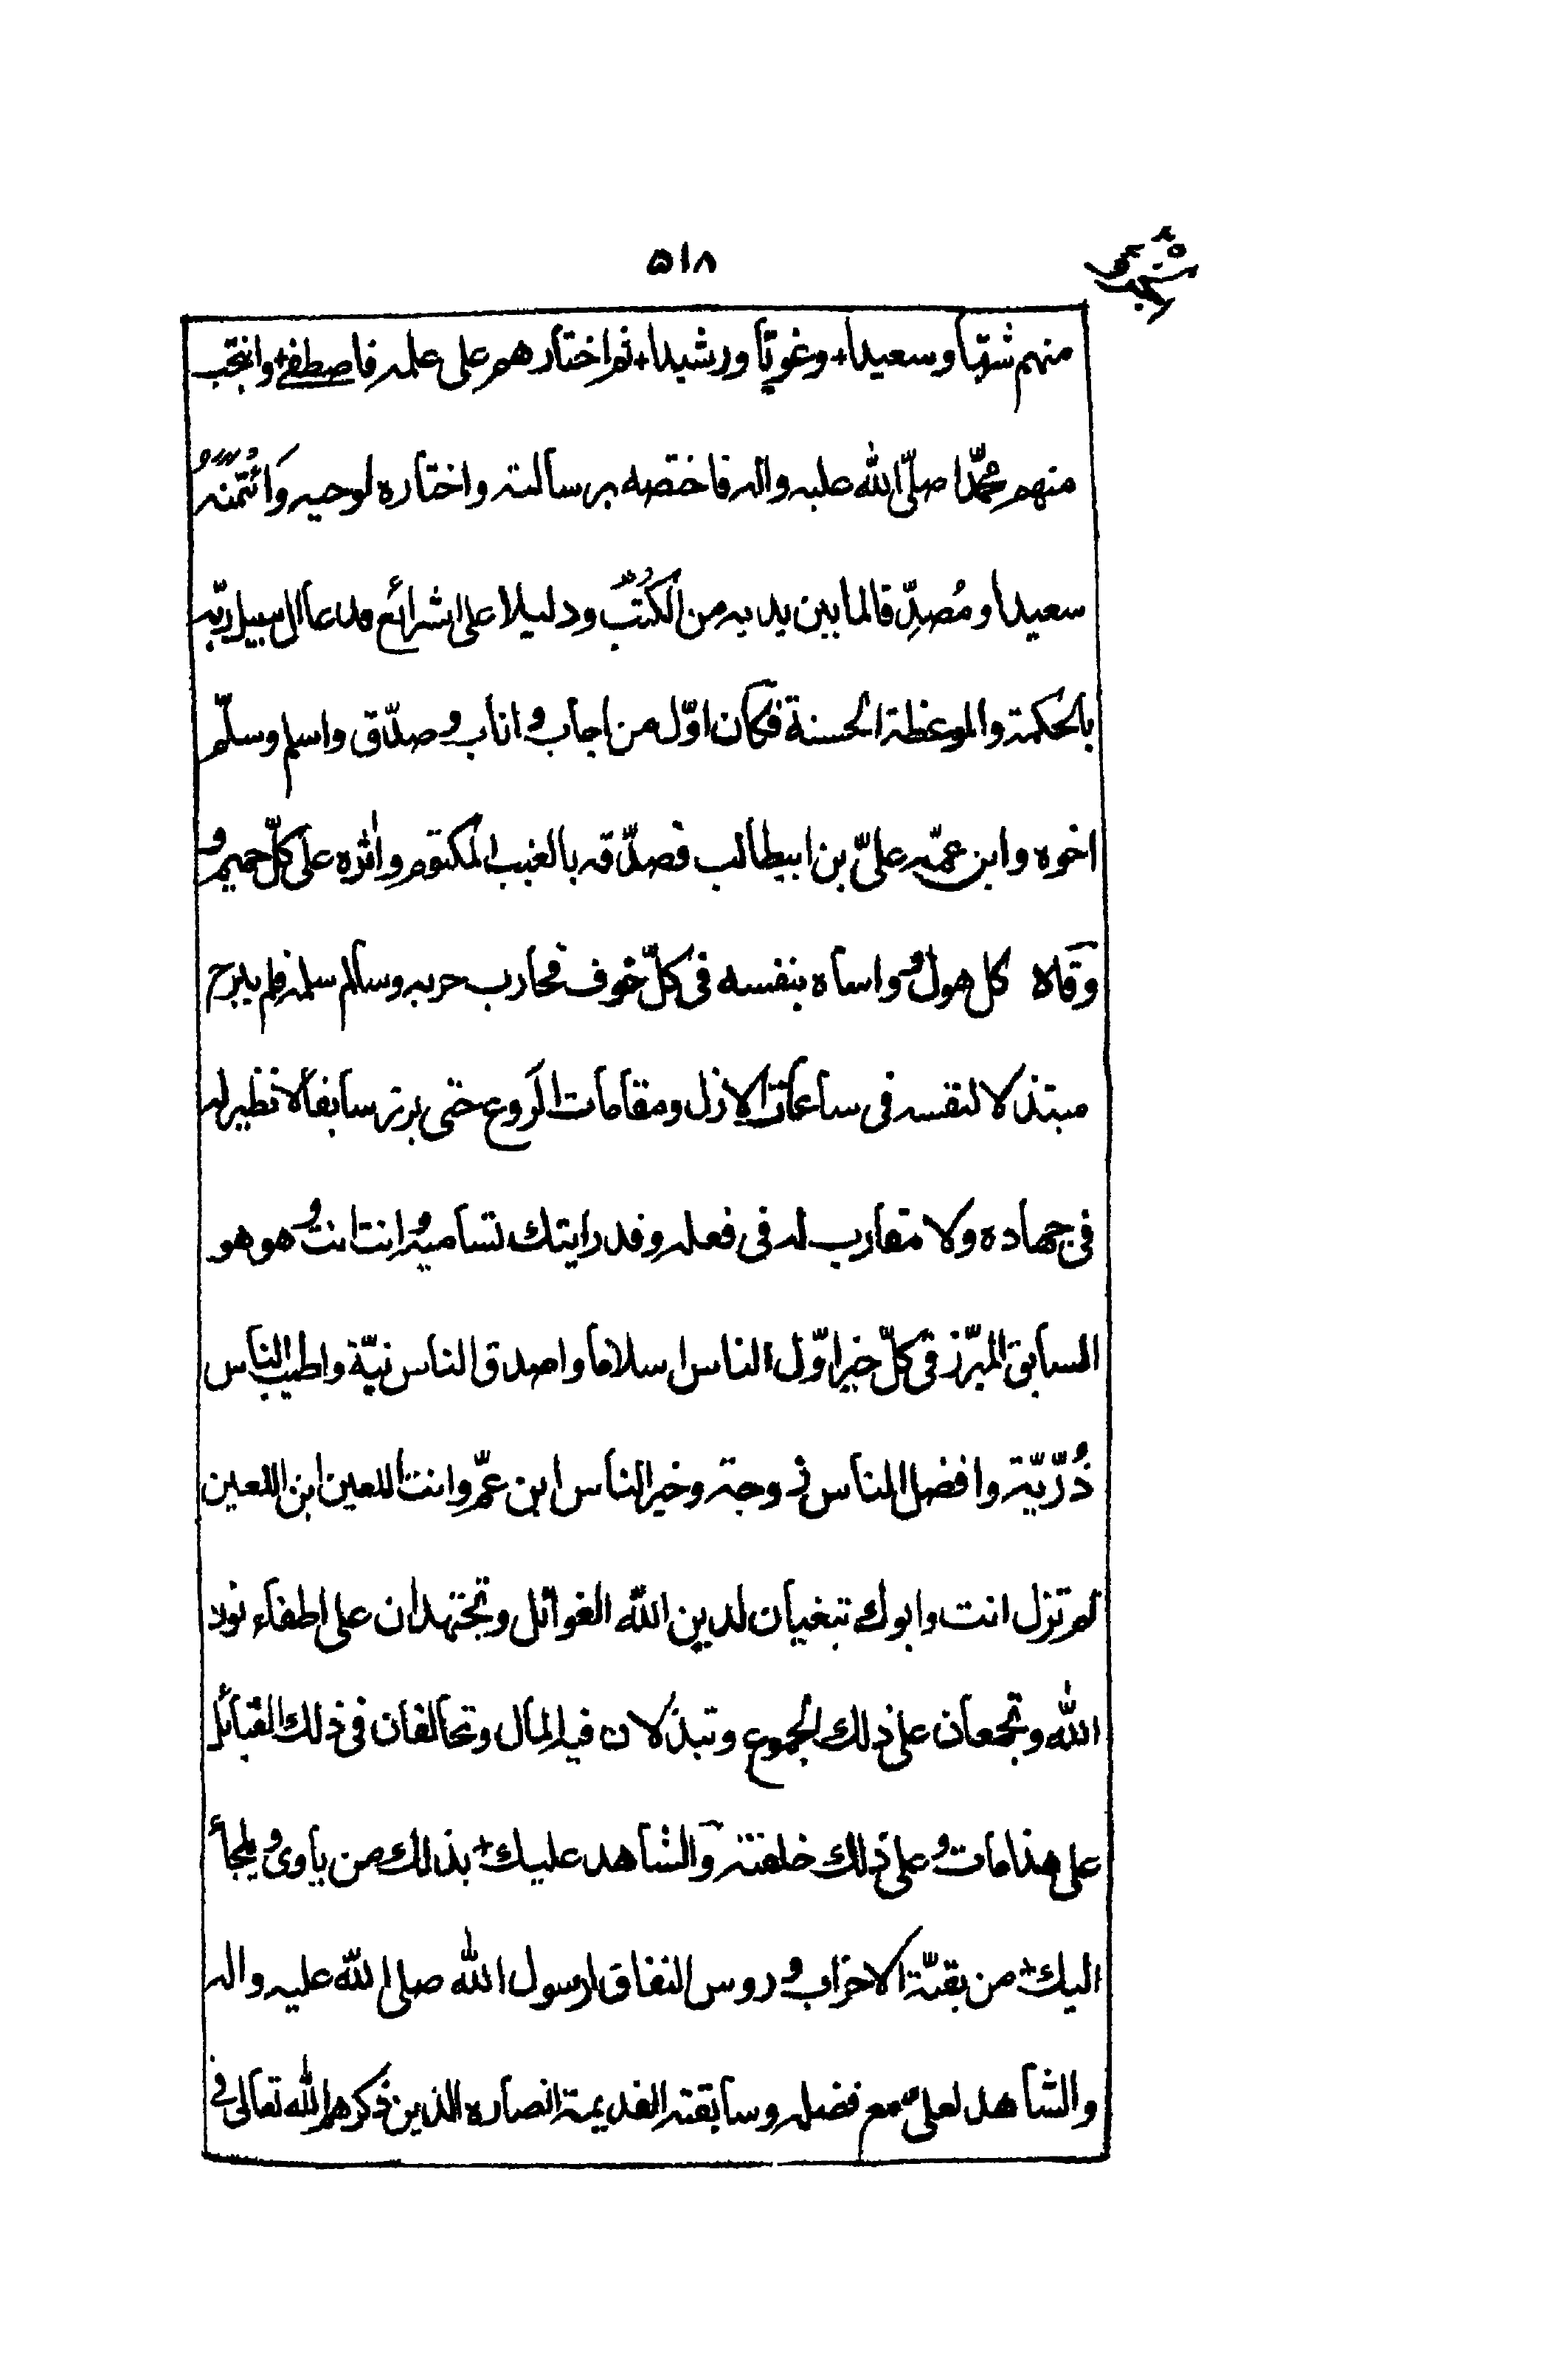 ۵۱۸
منهم شقیّاً و سعیدا و غویّاً و رشیدا ثم اختارهم علی علمه فاصطفی و انتجب
منهم محمّدا صلّی الله علیه واله فاختصه برسالته و اختاره لوحیه وَائتمنه
سعیدا و مُصدِّقا لما بین یدیه من الکُتُب و دلیلا علی الشرائع فدعا الی سبیل ربّه
بالحکمة والموعظة الحسنة فکان اوّل من اجاب و اناب و صدّق واسلم وسلّم
اخوه وابن عمّه علیّ بن ابیطالب فصدّقه بالغیب المکتوم و اثره علی کلّ حمیم و
وَقاه کل هول و واساه بنفسه فی کلّ خوف فحارب حربه وسالم سلمه فلم یبرح
مبتذلا لنفسه فی ساعات الازل ومقامات الرّوع حتی برز سابقاً لا نظیر له
فی جهاده ولا مقارب له فی فعله وقد رایتك تسامیه و انت انت و هو هو
السابق المبرّز فی کلّ خیر اوّل الناس اسلاما واصدق الناس نیّة واطیب الناس
ذُرّیّة وافضل الناس زوجة وخیر الناس ابن عمّ وانت اللعین ابن اللعین
لم تزل انت وابوك تبغیان لدین الله الغوائل وتجتهدان علی اطفاء نور
الله وتجمعان علی ذلك الجموع وتبذلان فیه المال وتحالفان فی ذلك القبائل
علی هذا مات و علی ذلك خلفته وَالشاهد علیك بذلك من یاوی و یلجأ
الیك من بقیّة الاحزاب و روس النفاق لرسول الله صلی الله علیه واله
والشاهد لعلیّ مع فضله وسابقته القدیمة انصاره الذین ذکرهم الله تعالی فی